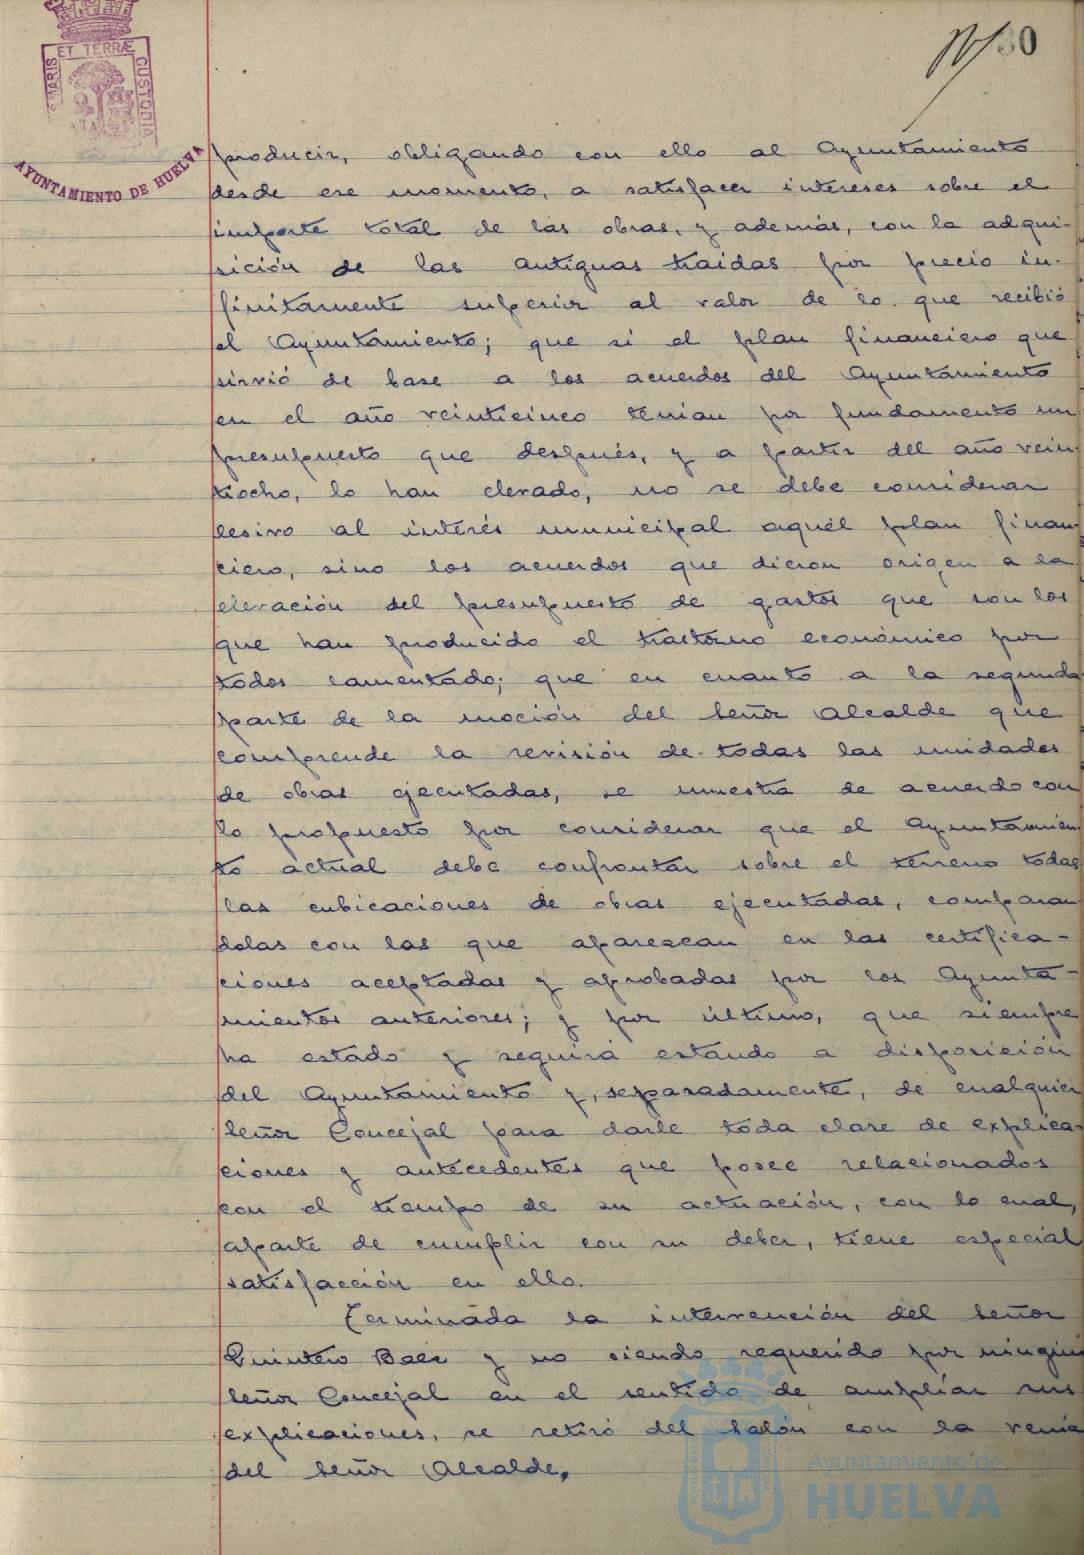 30
ET TERRÆ
MARIS
CUSTODIA
AYUNTAMIENTO DE HUELVA
producir, obligando con ello al Ayuntamiento
desde ese momento, a satisfacer intereses sobre el
importe total de las obras, y además, con la adqui-
sición de las antiguas traidas por precio in-
finitamente superior al valor de lo que recibió
el Ayuntamiento; que si el plan financiero que
sirvió de base a los acuerdos del Ayuntamiento
en el año veinticinco tenian por fundamento un
presupuesto que después, y a partir del año vein
tiocho, lo han elevado, no se debe considerar
lesivo al interés municipal aquél plan finan
ciero, sino los acuerdos que dieron origen a la
elevación del presupuesto de gastos que son los
que han producido el trastorno económico por
todos lamentado; que en cuanto a la segunda
parte de la moción del Señor Alcalde que
comprende la revisión de todas las unidades
de obras ejecutadas, se muestra de acuerdo con
lo propuesto por considerar que el Ayuntamien
to actual debe confrontar sobre el terreno todas
las cubicaciones de obras ejecutadas, comparan
dolas con las que aparezcan en las certifica-
ciones aceptadas y aprobadas por los Ayunta-
mientos anteriores; y por último, que siempre
ha estado y seguirá estando a disposición
del Ayuntamiento y, separadamente, de cualquier
Señor Concejal para darle toda clase de explica-
ciones y antecedentes que posee relacionados
con el tiempo de su actuación, con lo cual,
aparte de cumplir con su deber, tiene especial
satisfacción en ello.
Terminada la intervención del Señor
Quintero Baez y no siendo requerido por ningún
Señor Concejal en el sentido de ampliar sus
explicaciones, se retiró del Salón con la venia
del Señor Alcalde.
Ayuntamiento de
HUELVA